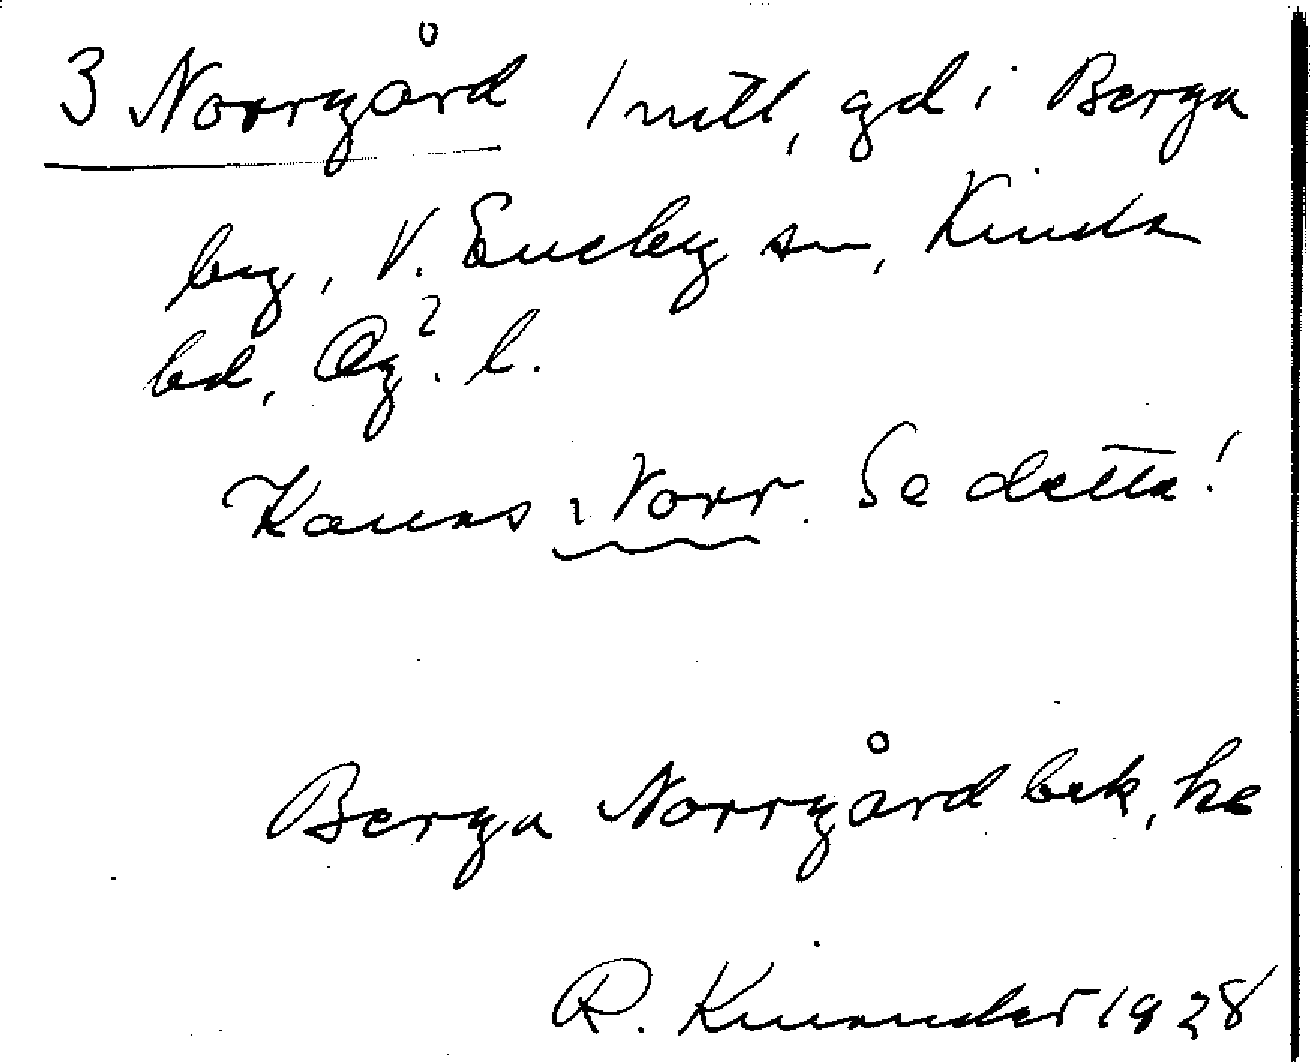 3 Norrgård 1 mtl, gd i Berga
by, V. Eneby sn, Kinda
hd, Ög. l.
Kallas: Norr. Se detta!
Berga Norrgård bek, he
R. Kinander 1928